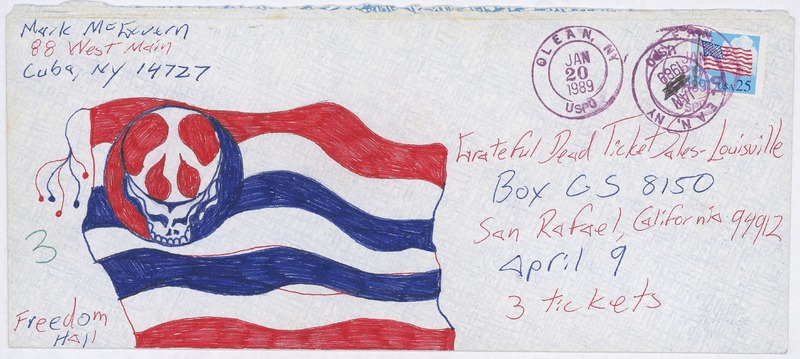 Mark McGavern
88 West Main
Cuba, NY 14727
OLEAN, NY
JAN
20
1989
USPO
USA 25
Grateful Dead Ticket Sales-Louisville
Box GS 8150
San Rafael, California 94912
April 9
3 tickets
3
Freedom
Hall